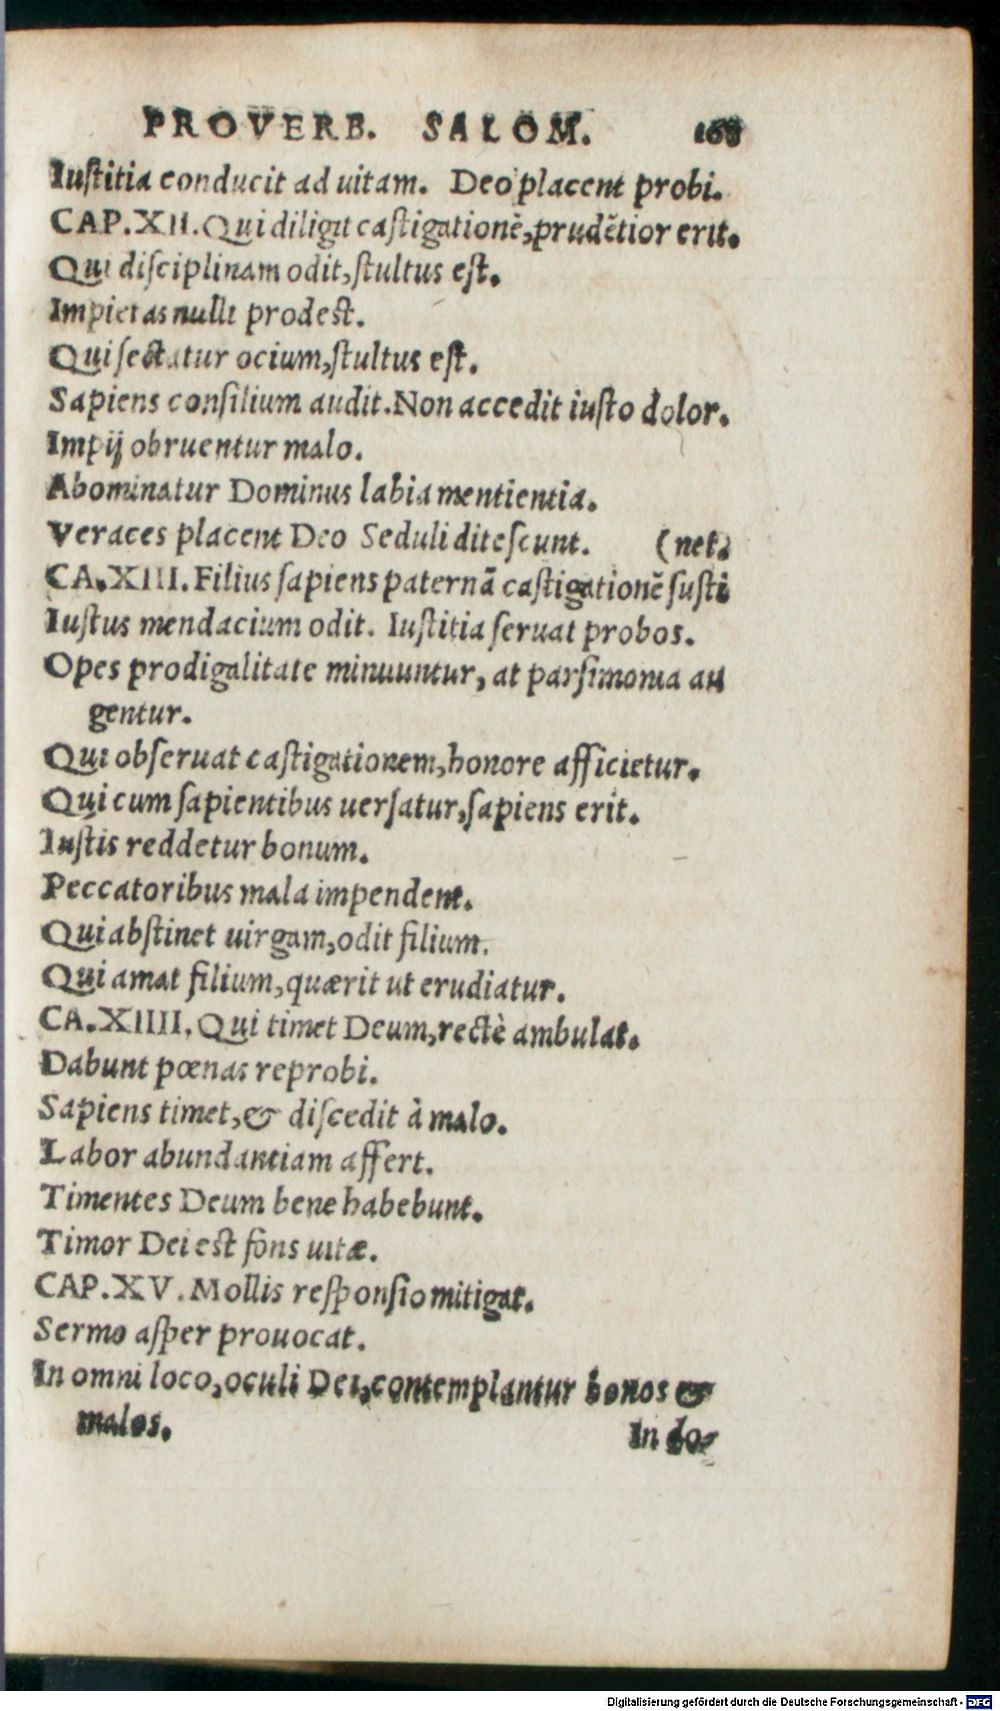 PROVERB. SALOM. 168
Iustitia conducit ad uitam. Deo placent probi.
CAP. XII. Qui diligit castigationē, prudētior erit.
Qui disciplinam odit, stultus est.
Impietas nulli prodest.
Qui sectatur ocium, stultus est.
Sapiens consilium audit. Non accedit iusto dolor.
Impij obruentur malo.
Abominatur Dominus labia mentientia.
Veraces placent Deo Seduli ditescunt. (net.
CA. XIII. Filius sapiens paternā castigationē susti
Iustus mendacium odit. Iustitia seruat probos.
Opes prodigalitate minuuntur, at parsimonia au
gentur.
Qui obseruat castigationem, honore afficietur.
Qui cum sapientibus uersatur, sapiens erit.
Iustis reddetur bonum.
Peccatoribus mala impendent.
Qui abstinet uirgam, odit filium.
Qui amat filium, quærit ut erudiatur.
CA. XIIII. Qui timet Deum, rectè ambulat.
Dabunt pœnas reprobi.
Sapiens timet, & discedit à malo.
Labor abundantiam affert.
Timentes Deum bene habebunt.
Timor Dei est fons uitæ.
CAP. XV. Mollis responsio mitigat.
Sermo asper prouocat.
In omni loco, oculi Dei, contemplantur bonos &
malos. In do-
Digitalisierung gefördert durch die Deutsche Forschungsgemeinschaft - DFG